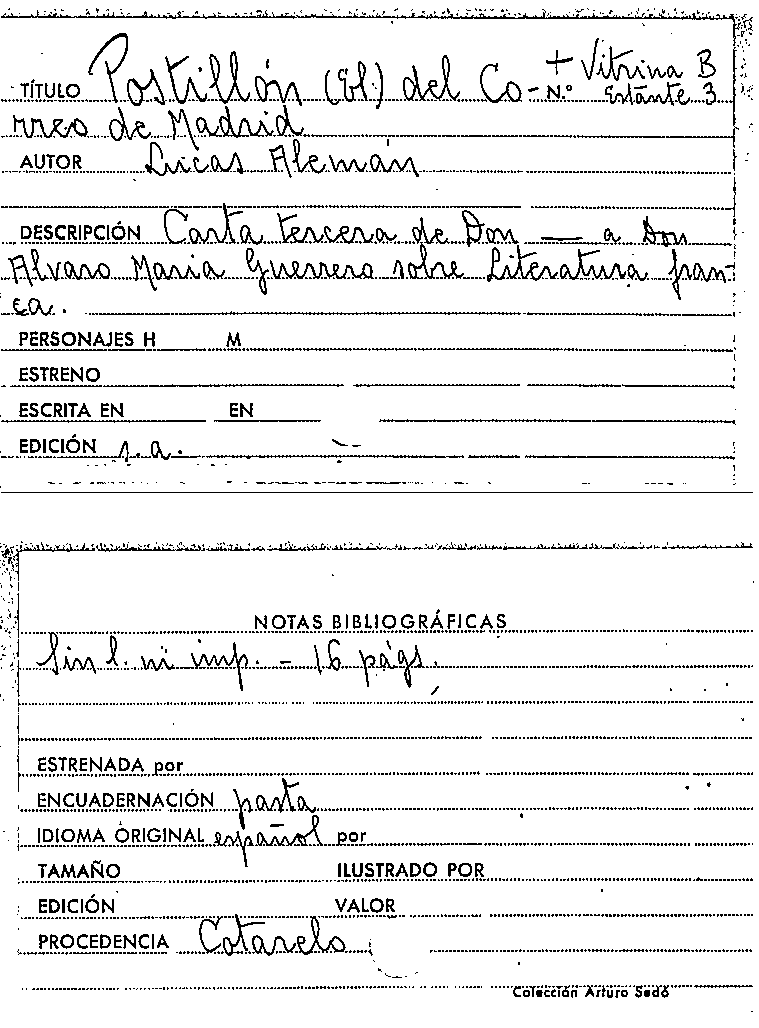 TÍTULO Postillón (El) del Co- + Vitrina B
N.º Estante 3
rreo de Madrid
AUTOR Lucas Alemán
DESCRIPCIÓN Carta tercera de Don — a Don
Alvaro Maria Guerrero sobre Literatura fran-
ca.
PERSONAJES H M
ESTRENO
ESCRITA EN EN
EDICIÓN s.a.
NOTAS BIBLIOGRÁFICAS
Sin l. ni imp. - 16 págs.
ESTRENADA por
ENCUADERNACIÓN pasta
IDIOMA ORIGINAL español por
TAMAÑO ILUSTRADO POR
EDICIÓN VALOR
PROCEDENCIA Cotarelo
Colección Arturo Sedó